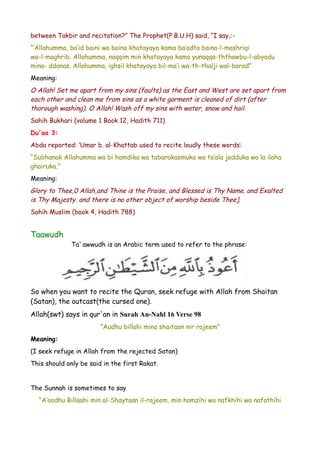 between Takbir and recitation?" The Prophet(P.B.U.H) said, "I say,:-
"'Allahumma, ba'id baini wa baina khatayaya kama ba'adta baina-l-mashriqi
wa-l-maghrib. Allahumma, naqqim min khatayaya kama yunaqqa-ththawbu-l-abyadu
mina- ddanas. Allahumma, ighsil khatayaya bil-ma'i wa-th-thalji wal-barad"
Meaning:
O Allah! Set me apart from my sins (faults) as the East and West are set apart from
each other and clean me from sins as a white garment is cleaned of dirt (after
thorough washing). O Allah! Wash off my sins with water, snow and hail.
Sahih Bukhari (volume 1 Book 12, Hadith 711)
Du'aa 3:
Abda reported: 'Umar b. al-Khattab used to recite loudly these words:
"Subhanak Allahumma wa bi hamdika wa tabarakasmuka wa ta'ala jadduka wa la ilaha
ghairuka."
Meaning:
Glory to Thee,0 Allah,and Thine is the Praise, and Blessed is Thy Name. and Exalted
is Thy Majesty. and there is no other object of worship beside Thee].
Sahih Muslim (book 4, Hadith 788)
Taawudh
Ta'awwudh is an Arabic term used to refer to the phrase:
أَعُوذُ بِاللَّهِ مِنَ الشَّيْطَانِ الرَّجِيمِ
So when you want to recite the Quran, seek refuge with Allah from Shaitan
(Satan), the outcast(the cursed one).
Allah(swt) says in qur'an in Surah An-Nahl 16 Verse 98
"Audhu billahi mina shaitaan nir rajeem"
Meaning:
(I seek refuge in Allah from the rejected Satan)
This should only be said in the first Rakat.
The Sunnah is sometimes to say
"A'oodhu Billaahi min al-Shaytaan il-rajeem, min hamzihi wa nafkhihi wa nafathihi